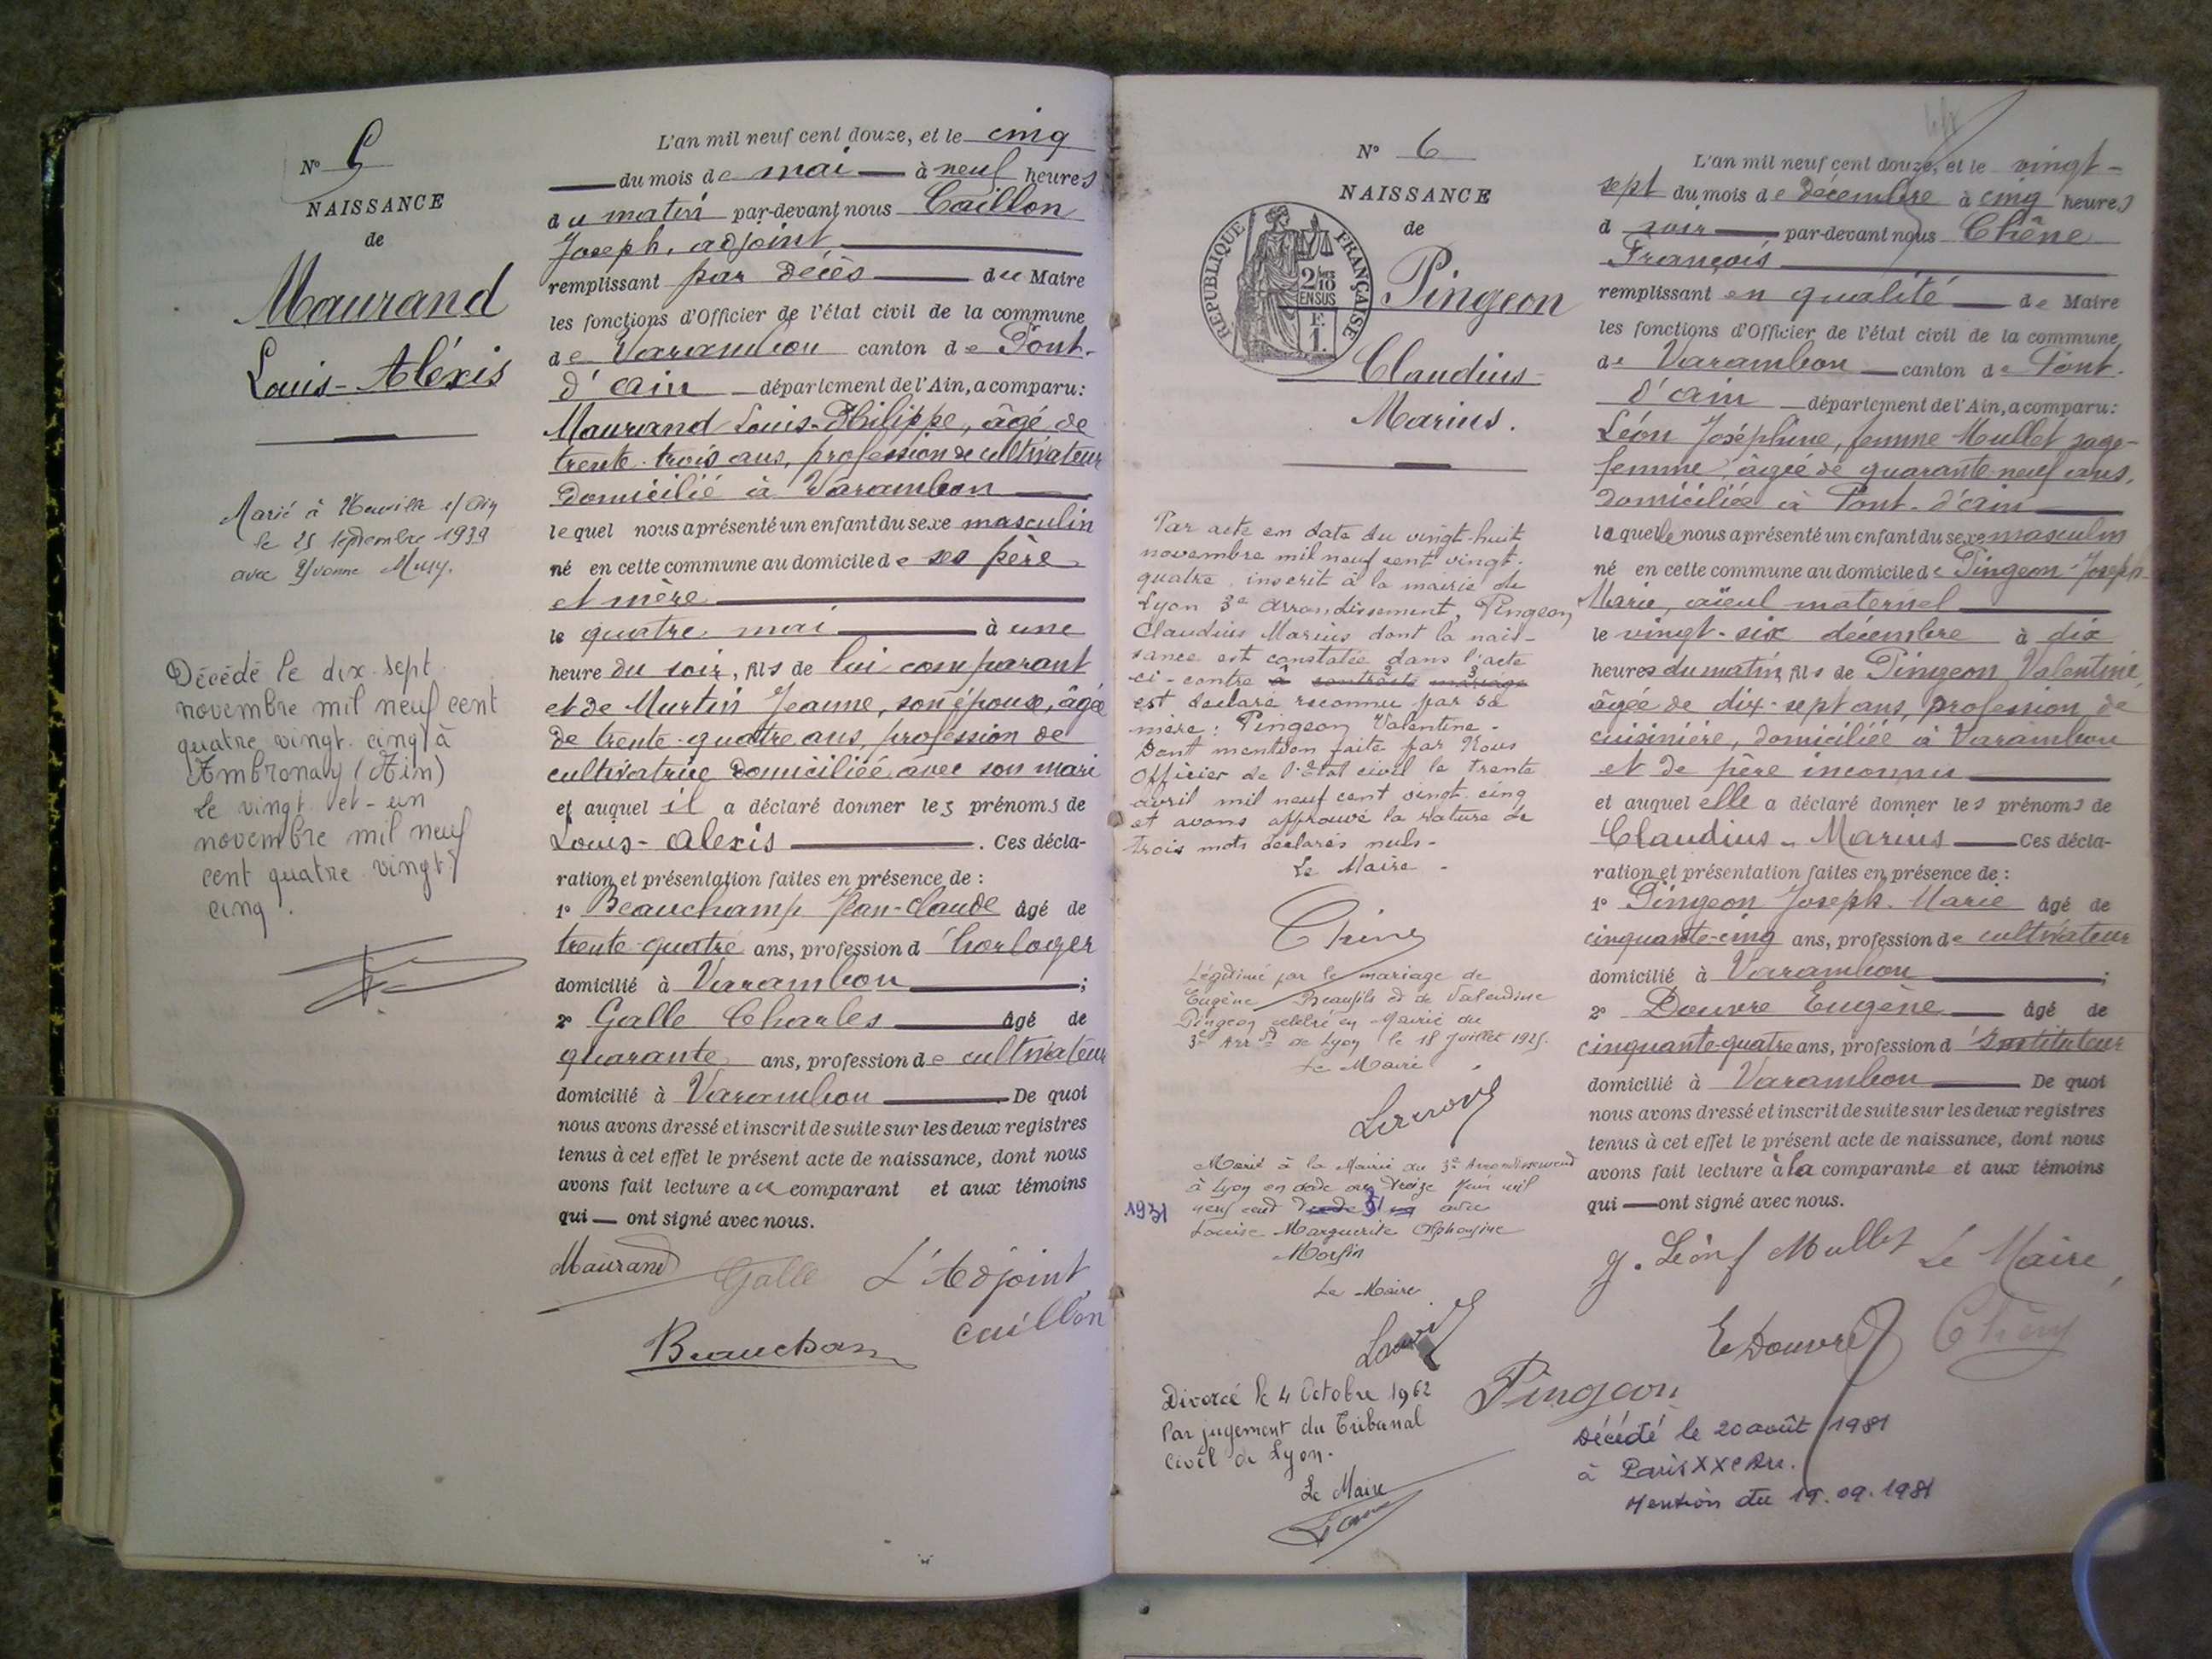 N° 5
NAISSANCE
de
Maurand
Louis-Aléxis
Marié à Neuville s/ Ain
le 25 septembre 1939
avec Yvonne Musy.
Décédé le dix sept
novembre mil neuf cent
quatre vingt cinq à
Ambronay (Ain)
Le vingt et-un
novembre mil neuf
cent quatre vingt
cinq.
L'an mil neuf cent douze, et le cinq
du mois de mai à neuf heures
du matin par-devant nous Caillon
Joseph, adjoint
remplissant par décès du Maire
les fonctions d'Officier de l'état civil de la commune
de Varambon canton de Pont-
d'ain département de l'Ain, a comparu:
Maurand Louis-Philippe, âgé de
trente-trois ans, profession de cultivateur
domicilié à Varambon
lequel nous a présenté un enfant du sexe masculin
né en cette commune au domicile de ses père
et mère
le quatre mai à une
heure du soir, fils de lui comparant
et de Murtin Jeanne, son épouse, âgée
de trente-quatre ans, profession de
cultivatrice domiciliée avec son mari
et auquel il a déclaré donner les prénoms de
Louis-Alexis. Ces décla-
ration et présentation faites en présence de :
1° Beauchamp Jean-Claude âgé de
trente-quatre ans, profession d'horloger
domicilié à Varambon;
2° Galle Charles âgé de
quarante ans, profession de cultivateur
domicilié à Varambon De quoi
nous avons dressé et inscrit de suite sur les deux registres
tenus à cet effet le présent acte de naissance, dont nous
avons fait lecture au comparant et aux témoins
qui ont signé avec nous.
Maurand Galle L'Adjoint
Caillon
Beaucham
N° 6
NAISSANCE
de
REPUBLIQUE FRANÇAISE
2/10
EN SUS
F.
1.
Pingeon
Claudius-
Marius.
Par acte en date du vingt-huit
novembre mil neuf cent vingt-
quatre inscrit à la mairie de
Lyon 3e arrondissement, Pingeon
Claudius Marius dont la nais-
sance est constatée dans l'acte
ci-contre à contracté mariage
est déclaré reconnu par sa
mère : Pingeon Valentine.
Dont mention faite par Nous
Officier de l'Etat civil le trente
avril mil neuf cent vingt cinq
et avons approuvé la rature de
trois mots déclarés nuls-
Le Maire -
Légitimé par le mariage de
Eugène Beaufils et de Valentine
Pingeon célébré en Mairie du
3e Arrdt de Lyon le 18 Juillet 1925.
Le Maire
Marié à la Mairie du 3e Arrondissement
à Lyon en date du treize juin mil
1931 neuf cent 31 avec
Louise Marguerite Alphonsine
Morfin
Le Maire
Divorcé le 4 Octobre 1962
Par jugement du Tribunal
Civil de Lyon.
Le Maire
L'an mil neuf cent douze, et le vingt-
sept du mois de décembre à cinq heures
d soir par-devant nous Chêne
François
remplissant en qualité de Maire
les fonctions d'Officier de l'état civil de la commune
de Varambon canton de Pont-
d'ain département de l'Ain, a comparu:
Léon Joséphine, femme Mullet sage-
femme âgée de quarante-neuf ans,
domiciliée à Pont-d'ain
laquelle nous a présenté un enfant du sexe masculin
né en cette commune au domicile de Pingeon Joseph-
Marie, aïeul maternel
le vingt-six décembre à dix
heures du matin, fils de Pingeon Valentine,
âgée de dix-sept ans, profession de
cuisinière, domiciliée à Varambon
et de père inconnu
et auquel elle a déclaré donner les prénoms de
Claudius-Marius Ces décla-
ration et présentation faites en présence de :
1° Pingeon Joseph-Marie âgé de
cinquante-cinq ans, profession de cultivateur
domicilié à Varambon;
2° Douvre Eugène âgé de
cinquante-quatre ans, profession d'Instituteur
domicilié à Varambon De quoi
nous avons dressé et inscrit de suite sur les deux registres
tenus à cet effet le présent acte de naissance, dont nous
avons fait lecture à la comparante et aux témoins
qui ont signé avec nous.
J. Léon f Mullet Le Maire,
E Douvre
Pingeon
Décédé le 20 août 1981
à Paris XXe Arr.
Mention du 19.09.1981